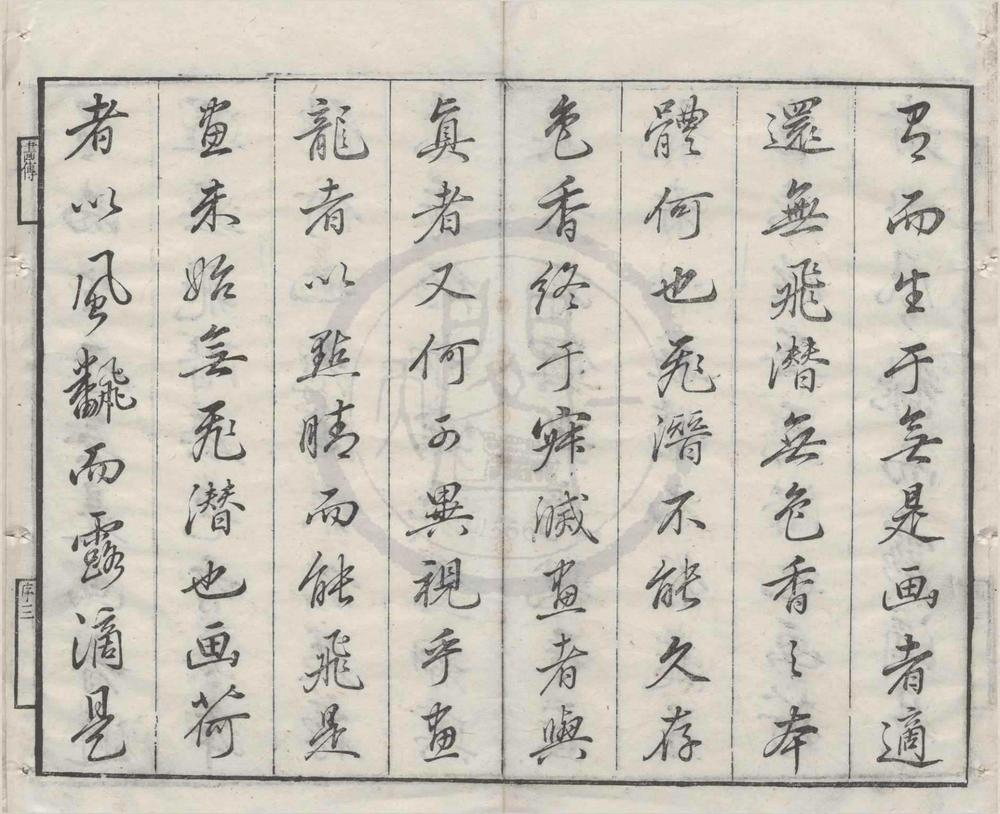 有而生于無是画者適
還無飛潛無色香之本
體何也飛潛不能久存
色香終于寂滅畫者與
眞者又何可異視乎畫
龍者以點睛而能飛是
畫未始無飛潛也画荷
者以風飜而露滴是
畫傳
序三